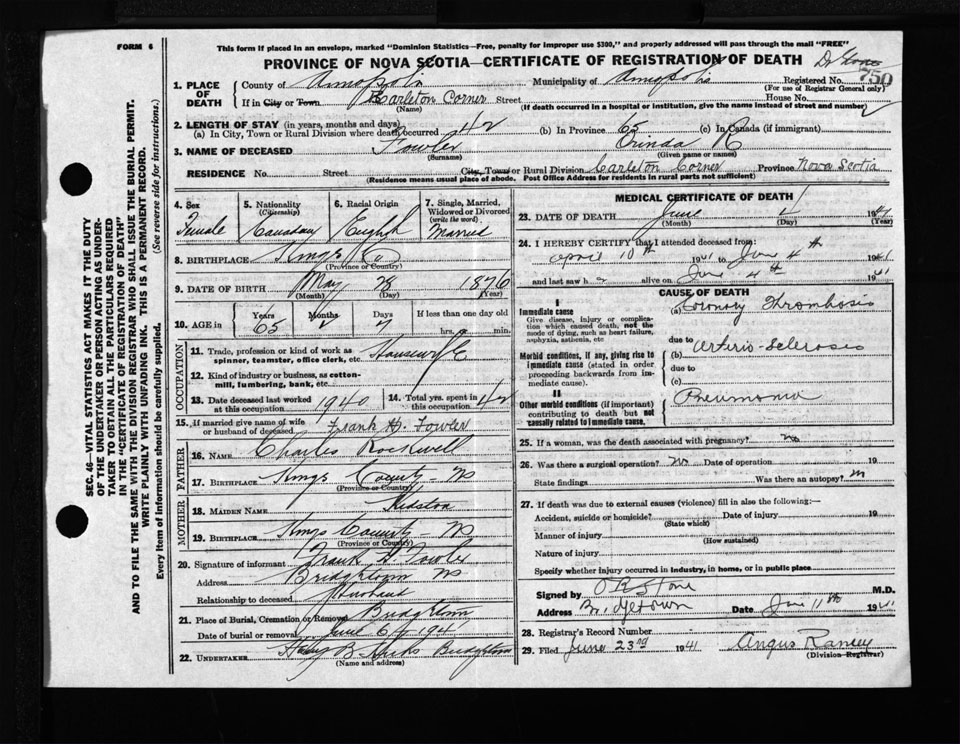 FORM 6
This form if placed in an envelope, marked "Dominion Statistics—Free, penalty for improper use $300," and properly addressed will pass through the mail "FREE"
PROVINCE OF NOVA SCOTIA—CERTIFICATE OF REGISTRATION OF DEATH
750
1. PLACE OF DEATH
County of Annapolis Municipality of Annapolis Registered No.
(For use of Registrar General only)
If in City or Town Carleton Corner Street House No.
(Name) (If death occurred in a hospital or institution, give the name instead of street and number)
2. LENGTH OF STAY (in years, months and days)
(a) In City, Town or Rural Division where death occurred 42 (b) In Province 65 (c) In Canada (if immigrant)
3. NAME OF DECEASED Fowler Orinda R
(Surname) (Given name or names)
RESIDENCE No. Street City, Town or Rural Division Carleton Corner Province Nova Scotia
(Residence means usual place of abode. Post Office Address for residents in rural parts not sufficient)
4. Sex Female
5. Nationality (Citizenship) Canadian
6. Racial Origin English
7. Single, Married, Widowed or Divorced (write the word) Married
8. BIRTHPLACE Kings Co
(Province or Country)
9. DATE OF BIRTH May 28 1876
(Month) (Day) (Year)
10. AGE in Years 65 Months Days 7 If less than one day old
hrs. min.
OCCUPATION
11. Trade, profession or kind of work as spinner, teamster, office clerk, etc. Housewife
12. Kind of industry or business, as cotton-mill, lumbering, bank, etc.
13. Date deceased last worked at this occupation 1940
14. Total yrs. spent in this occupation 42
15. If married give name of wife or husband of deceased Frank H. Fowler
FATHER
16. NAME Charles Rockwell
17. BIRTHPLACE Kings County NS
(Province or Country)
MOTHER
18. MAIDEN NAME
19. BIRTHPLACE Kings County NS
(Province or Country)
20. Signature of informant Frank H Fowler
Address Bridgetown NS
Relationship to deceased Husband
21. Place of Burial, Cremation or Removal Bridgetown
Date of burial or removal June 6th 1941
22. UNDERTAKER B. Hicks Bridgetown
(Name and address)
MEDICAL CERTIFICATE OF DEATH
23. DATE OF DEATH June 4 1941
(Month) (Day)
24. I HEREBY CERTIFY that I attended deceased from:
April 10th 1941 to June 4th 1941
and last saw h alive on June 4th 1941
CAUSE OF DEATH
I
Immediate cause
Give disease, injury or complication which caused death, not the mode of dying, such as heart failure, asphyxia, asthenia, etc
(a) Coronary Thrombosis
due to
Morbid conditions, if any, giving rise to immediate cause (stated in order proceeding backwards from immediate cause).
(b) Arterio-Sclerosis
due to
(c)
II
Other morbid conditions (if important) contributing to death but not causally related to immediate cause.
Pneumonia
25. If a woman, was the death associated with pregnancy? no
26. Was there a surgical operation? no Date of operation 19
State findings Was there an autopsy? no
27. If death was due to external causes (violence) fill in also the following:—
Accident, suicide or homicide? Date of injury 19
(State which)
Manner of injury
(How sustained)
Nature of injury
Specify whether injury occurred in industry, in home, or in public place
Signed by Stone M.D.
Address Bridgetown Date June 11th 1941
28. Registrar's Record Number
29. Filed June 23rd 1941 Angus Ramey
(Division Registrar)
SEC. 46—VITAL STATISTICS ACT MAKES IT THE DUTY
OF THE UNDERTAKER OR PERSON ACTING AS UNDER-
TAKER TO OBTAIN ALL THE PARTICULARS REQUIRED
IN THE "CERTIFICATE OF REGISTRATION OF DEATH"
AND TO FILE THE SAME WITH THE DIVISION REGISTRAR WHO SHALL ISSUE THE BURIAL PERMIT.
WRITE PLAINLY WITH UNFADING INK. THIS IS A PERMANENT RECORD.
Every item of Information should be carefully supplied. (See reverse side for instructions.)